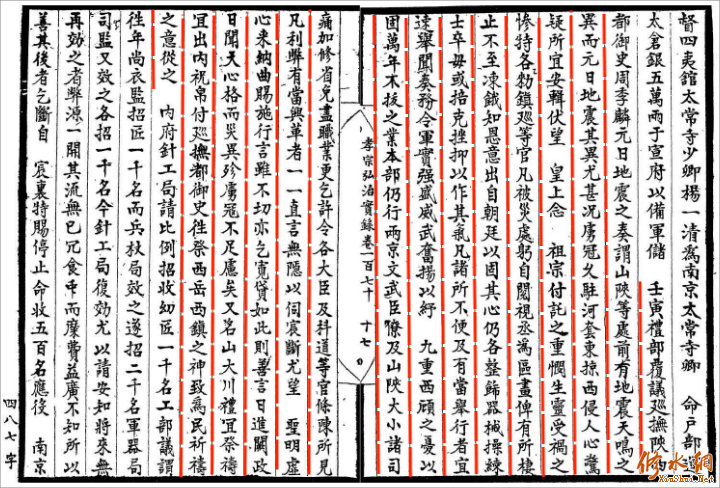 督四夷館太常寺少卿楊一清爲南京太常寺卿　命戶部運
太倉銀五萬兩于宣府以備軍儲　壬寅禮部覆議巡撫陝西
都御史周季麟元日地震之奏謂山陝等處前有地震天鳴之
異而元日地震其異尤甚況虜冦久駐河套東掠西侵人心驚
疑所宜安輯伏望　皇上念　祖宗付託之重憫生靈受禍之
惨特各勑鎮巡等官凡被災處躬自閱視丞爲區畫俾有所棲
止不至凍餓知恩意出自朝廷以固其心仍各整飾器械操練
士卒毋或掊克挫抑以作其氣凡諸所不便及有當舉行者宜
速舉聞奏務令軍實强盛威武奮揚以紓　九重西頋之憂以
固萬年不拔之業本部仍行兩京文武臣僚及山陝大小諸司
孝宗弘治實録卷一百七十　十七
痛加修省免盡職業更乞許令各大臣及科道等官條陳所見
凡利弊有當興革者一一直言無隱以伺宸斷尤望　聖明虛
心釆納曲賜施行言雖不切亦乞寬貸如此則善言日進闕政
日聞天心格而災異珍虜冦不足慮矣又名山大川禮宜祭禱
宜出内祝帛付巡撫都御史徃祭西岳西鎮之神致爲民祈禱
之意從之　内府針工局請比例招收幼匠一千名工部議謂
徃年尚衣監招匠一千名而兵杖局效之遂招二千名軍器局
司監又效之各招一千名今針工局復効尤以請安知將來無
再効之者弊源一開其流無已冗食中而糜費益廣不知所以
善其後者乞斷自　宸衷特賜停止命收五百名應役　南京
四八七字
修水網
XiuShui.Net